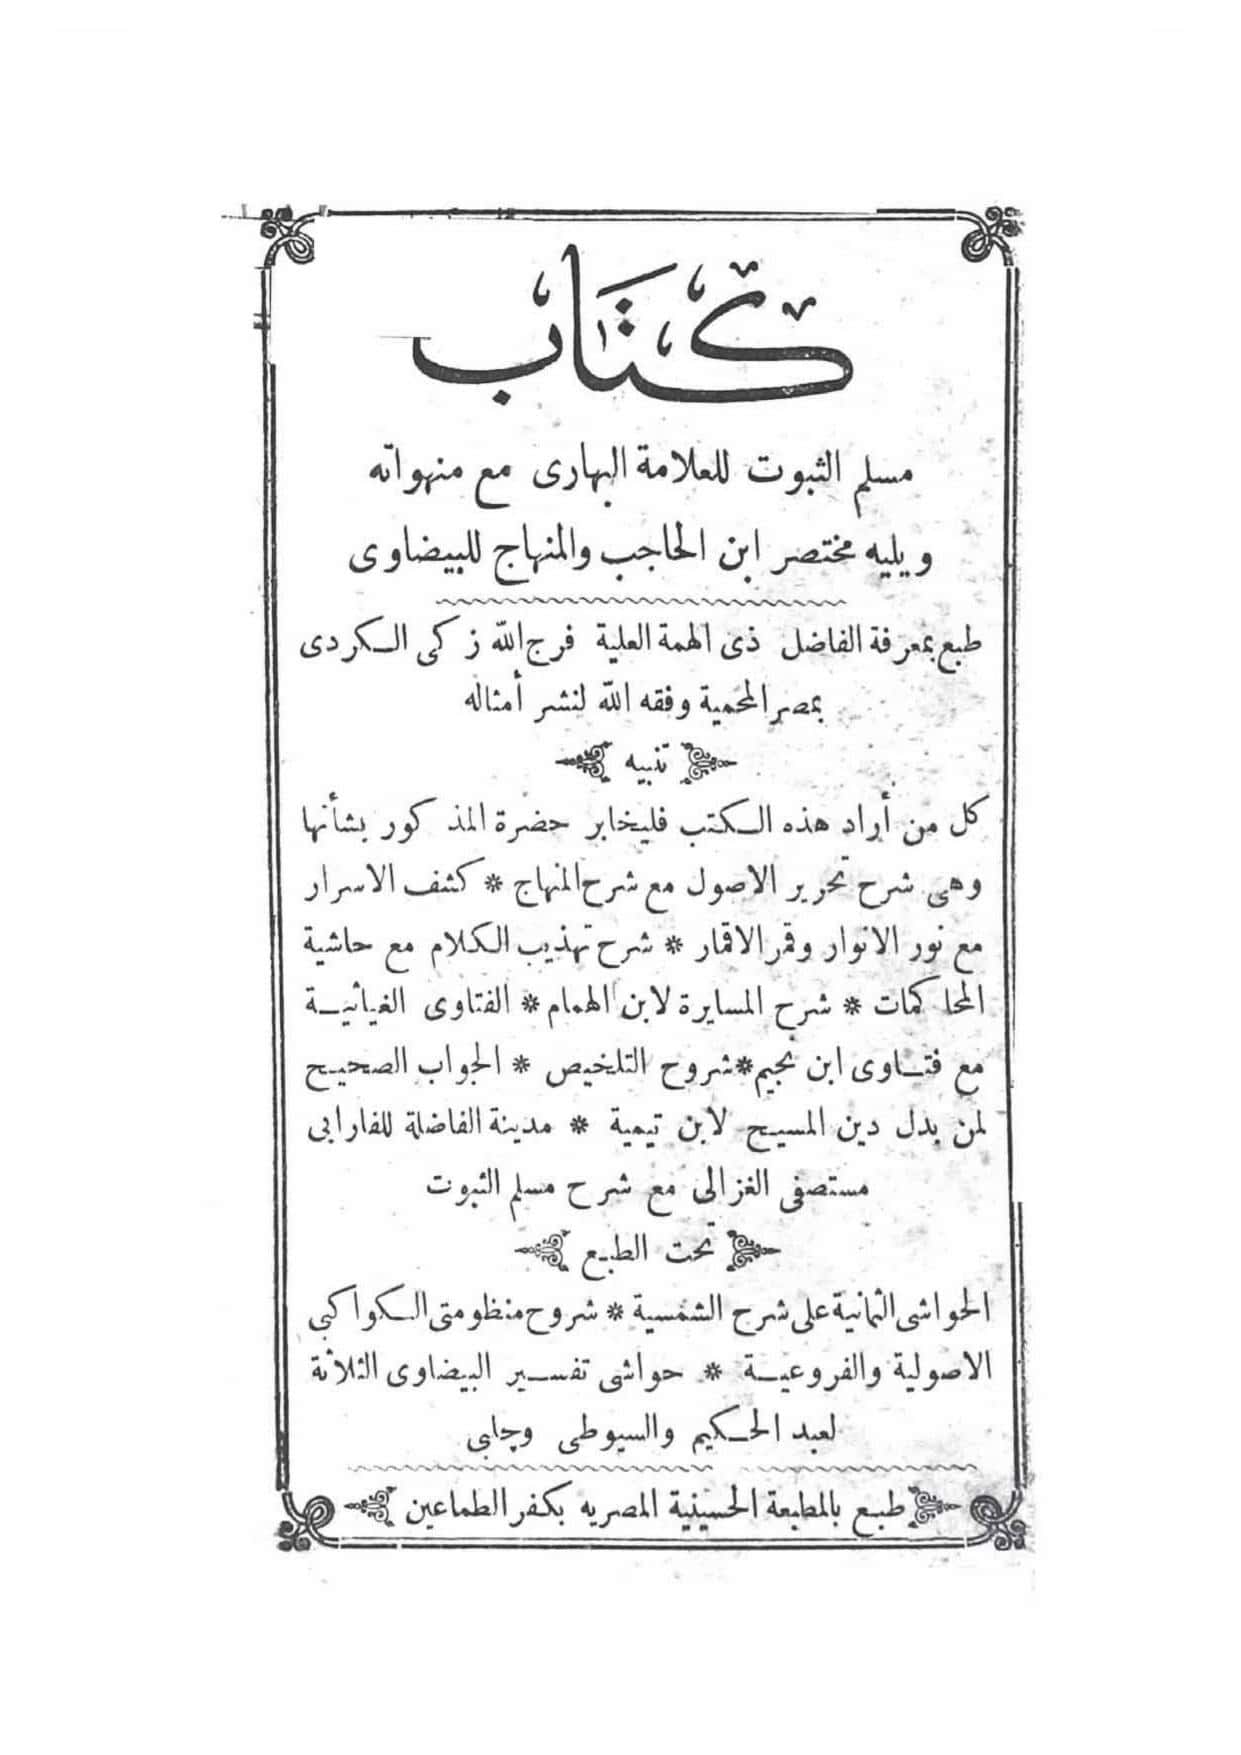 كتاب
مسلم الثبوت للعلامة البهارى مع منهواته
ويليه مختصر ابن الحاجب والمنهاج للبيضاوى
طبع بمعرفة الفاضل ذى الهمة العلية فرج الله زكى الكردى
بمصر المحمية وفقه الله لنشر أمثاله
تنبيه
كل من أراد هذه الكتب فليخابر حضرة المذكور بشأنها
وهى شرح تحرير الاصول مع شرح المنهاج * كشف الاسرار
مع نور الانوار وقمر الاقمار * شرح تهذيب الكلام مع حاشية
المحاكمات * شرح المسايرة لابن الهمام * الفتاوى الغياثية
مع فتاوى ابن نجيم * شروح التلخيص * الجواب الصحيح
لمن بدل دين المسيح لابن تيمية * مدينة الفاضلة للفارابى
مستصفى الغزالى مع شرح مسلم الثبوت
تحت الطبع
الحواشى الثمانية على شرح الشمسية * شروح منظومتى الكواكبى
الاصولية والفروعية * حواشى تفسير البيضاوى الثلاثة
لعبد الحكيم والسيوطى وچلبى
طبع بالمطبعة الحسينية المصريه بكفر الطماعين